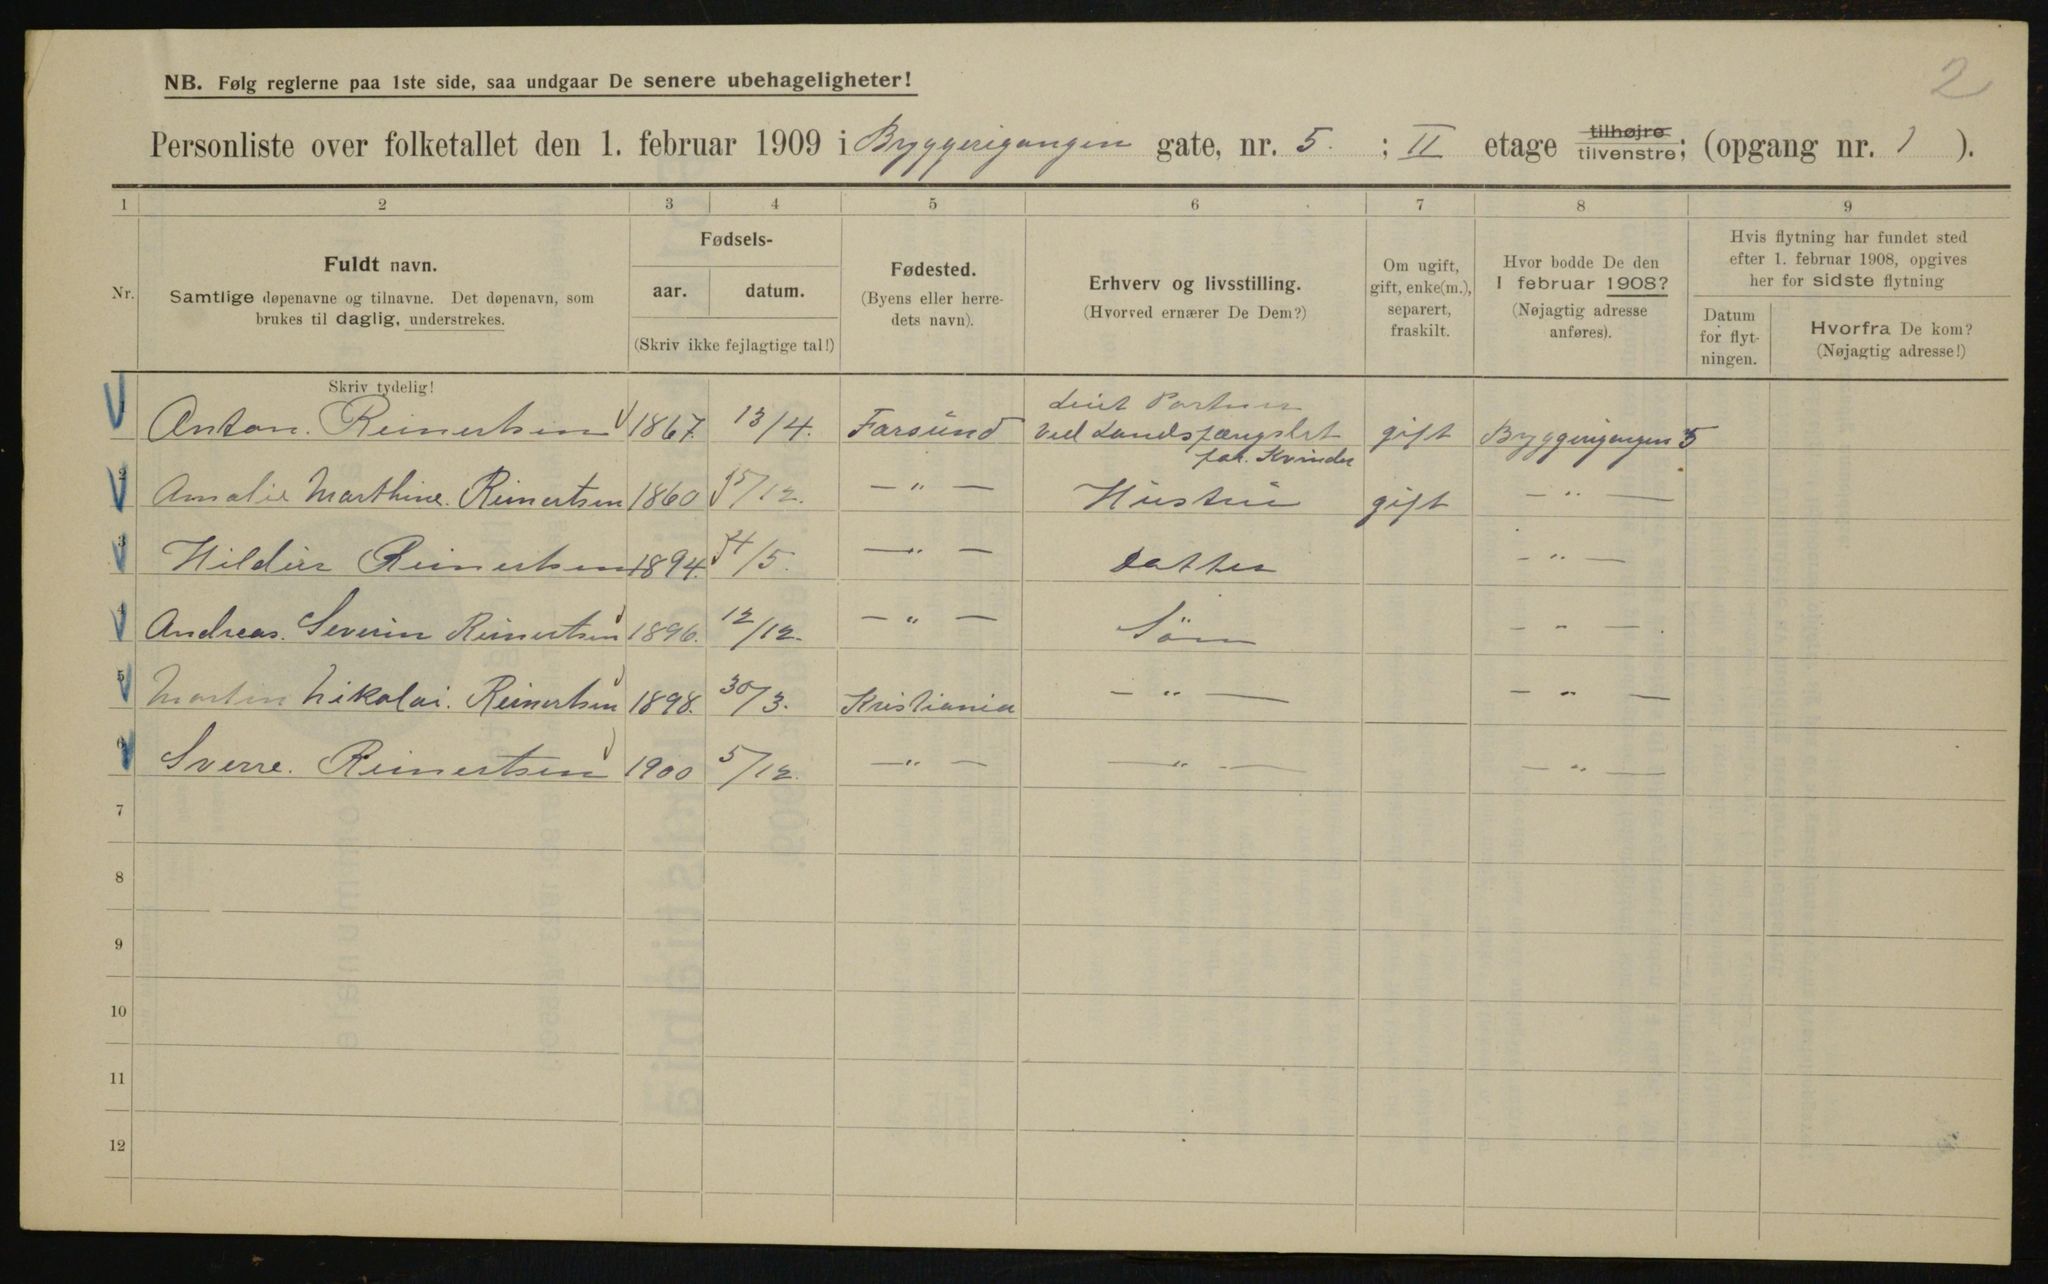 2
NB. Følg reglerne paa 1ste side, saa undgaar De senere ubehageligheter!
Personliste over folketallet den 1. februar 1909 i Byggerigangen gate, nr. 5. ; II etage tilhøjre tilvenstre; (opgang nr. 1 ).
1 2 3 4 5 6 7 8 9
Nr.
Fuldt navn.
Samtlige døpenavne og tilnavne. Det døpenavn, som
brukes til daglig, understrekes.
Skriv tydelig!
Fødsels-
aar. datum.
(Skriv ikke fejlagtige tal!)
Fødested.
(Byens eller herre-
dets navn).
Erhverv og livsstilling.
(Hvorved ernærer De Dem?)
Om ugift,
gift, enke(m.),
separert,
fraskilt.
Hvor bodde De den
1 februar 1908?
(Nøjagtig adresse
anføres).
Hvis flytning har fundet sted
efter 1. februar 1908, opgives
her for sidste flytning
Datum
for flyt-
ningen.
Hvorfra De kom?
(Nøjagtig adresse!)
1 Anton. Reinertsen 1867. 13/4. Farsund
ved Landsfængslet
for. Kvinder
gift Byggerigangen 5
2 Amalie Marthine. Reinertsen 1860 15/12. — " — Hustru gift — " —
3 Reinertsen 1894. /5. — " — Datter — " —
4 Andreas. Severin Reinertsen 1896. 12/12. — " — Søn — " —
5 Martin Nikolai. Reinertsen 1898. 30/3. Kristiania — " — — " —
6 Sverre. Reinertsen 1900 5/12. — " — — " — — " —
7
8
9
10
11
12